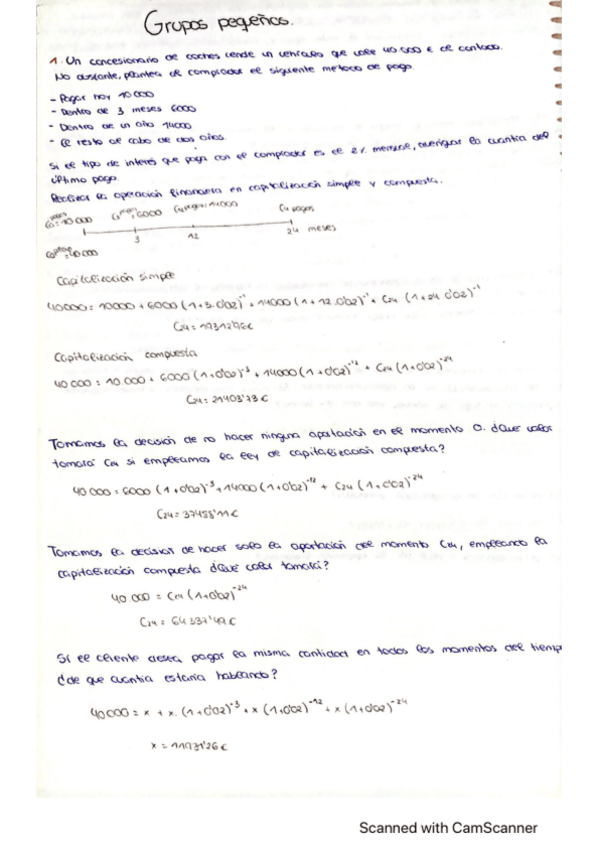 Grupos pequeños.
1. Un concesionario de coches vende un vehículo que vale 40.000 € de contado.
No obstante, plantea al comprador el siguiente método de pago.
- Pagar hoy 10000
- Dentro de 3 meses 6000
- Dentro de un año 14000
- El resto al cabo de dos años.
Si el tipo de interés que paga con el comprador es el 2% mensual, averiguar la cuantía del
último pago.
Realizar la operación financiera en capitalización simple y compuesta.
C0 pagos = 10000 C3 pagos = 6000 C12 pagos = 14000 C24 pagos
3 12 24 meses
= 40000
Capitalización simple
40000 = 10000 + 6000 (1+3.0'02)⁻¹ + 14000 (1+12.0'02)⁻¹ + C24 (1+24.0'02)⁻¹
C24 = 19312'96€
Capitalización compuesta
40000 = 10.000 + 6000 (1+0'02)⁻³ + 14000 (1+0'02)⁻¹² + C24 (1+0'02)⁻²⁴
C24 = 21403'73€
Tomamos la decisión de no hacer ninguna aportación en el momento 0. ¿Que valor
tomará C24 si empleamos la ley de capitalización compuesta?
40000 = 6000 (1+0'02)⁻³ + 14000 (1+0'02)⁻¹² + C24 (1+0'02)⁻²⁴
C24 = 37488'11€
Tomamos la decisión de hacer solo la aportación del momento C24, empleando la
capitalización compuesta ¿Que valor tomará?
40000 = C24 (1+0'02)⁻²⁴
C24 = 64337'49€
Si el cliente desea pagar la misma cantidad en todos los momentos del tiemp
¿de que cuantía estaría hablando?
40000 = x + x. (1+0'02)⁻³ + x (1+0'02)⁻¹² + x (1+0'02)⁻²⁴
x = 11931'26€
Scanned with CamScanner